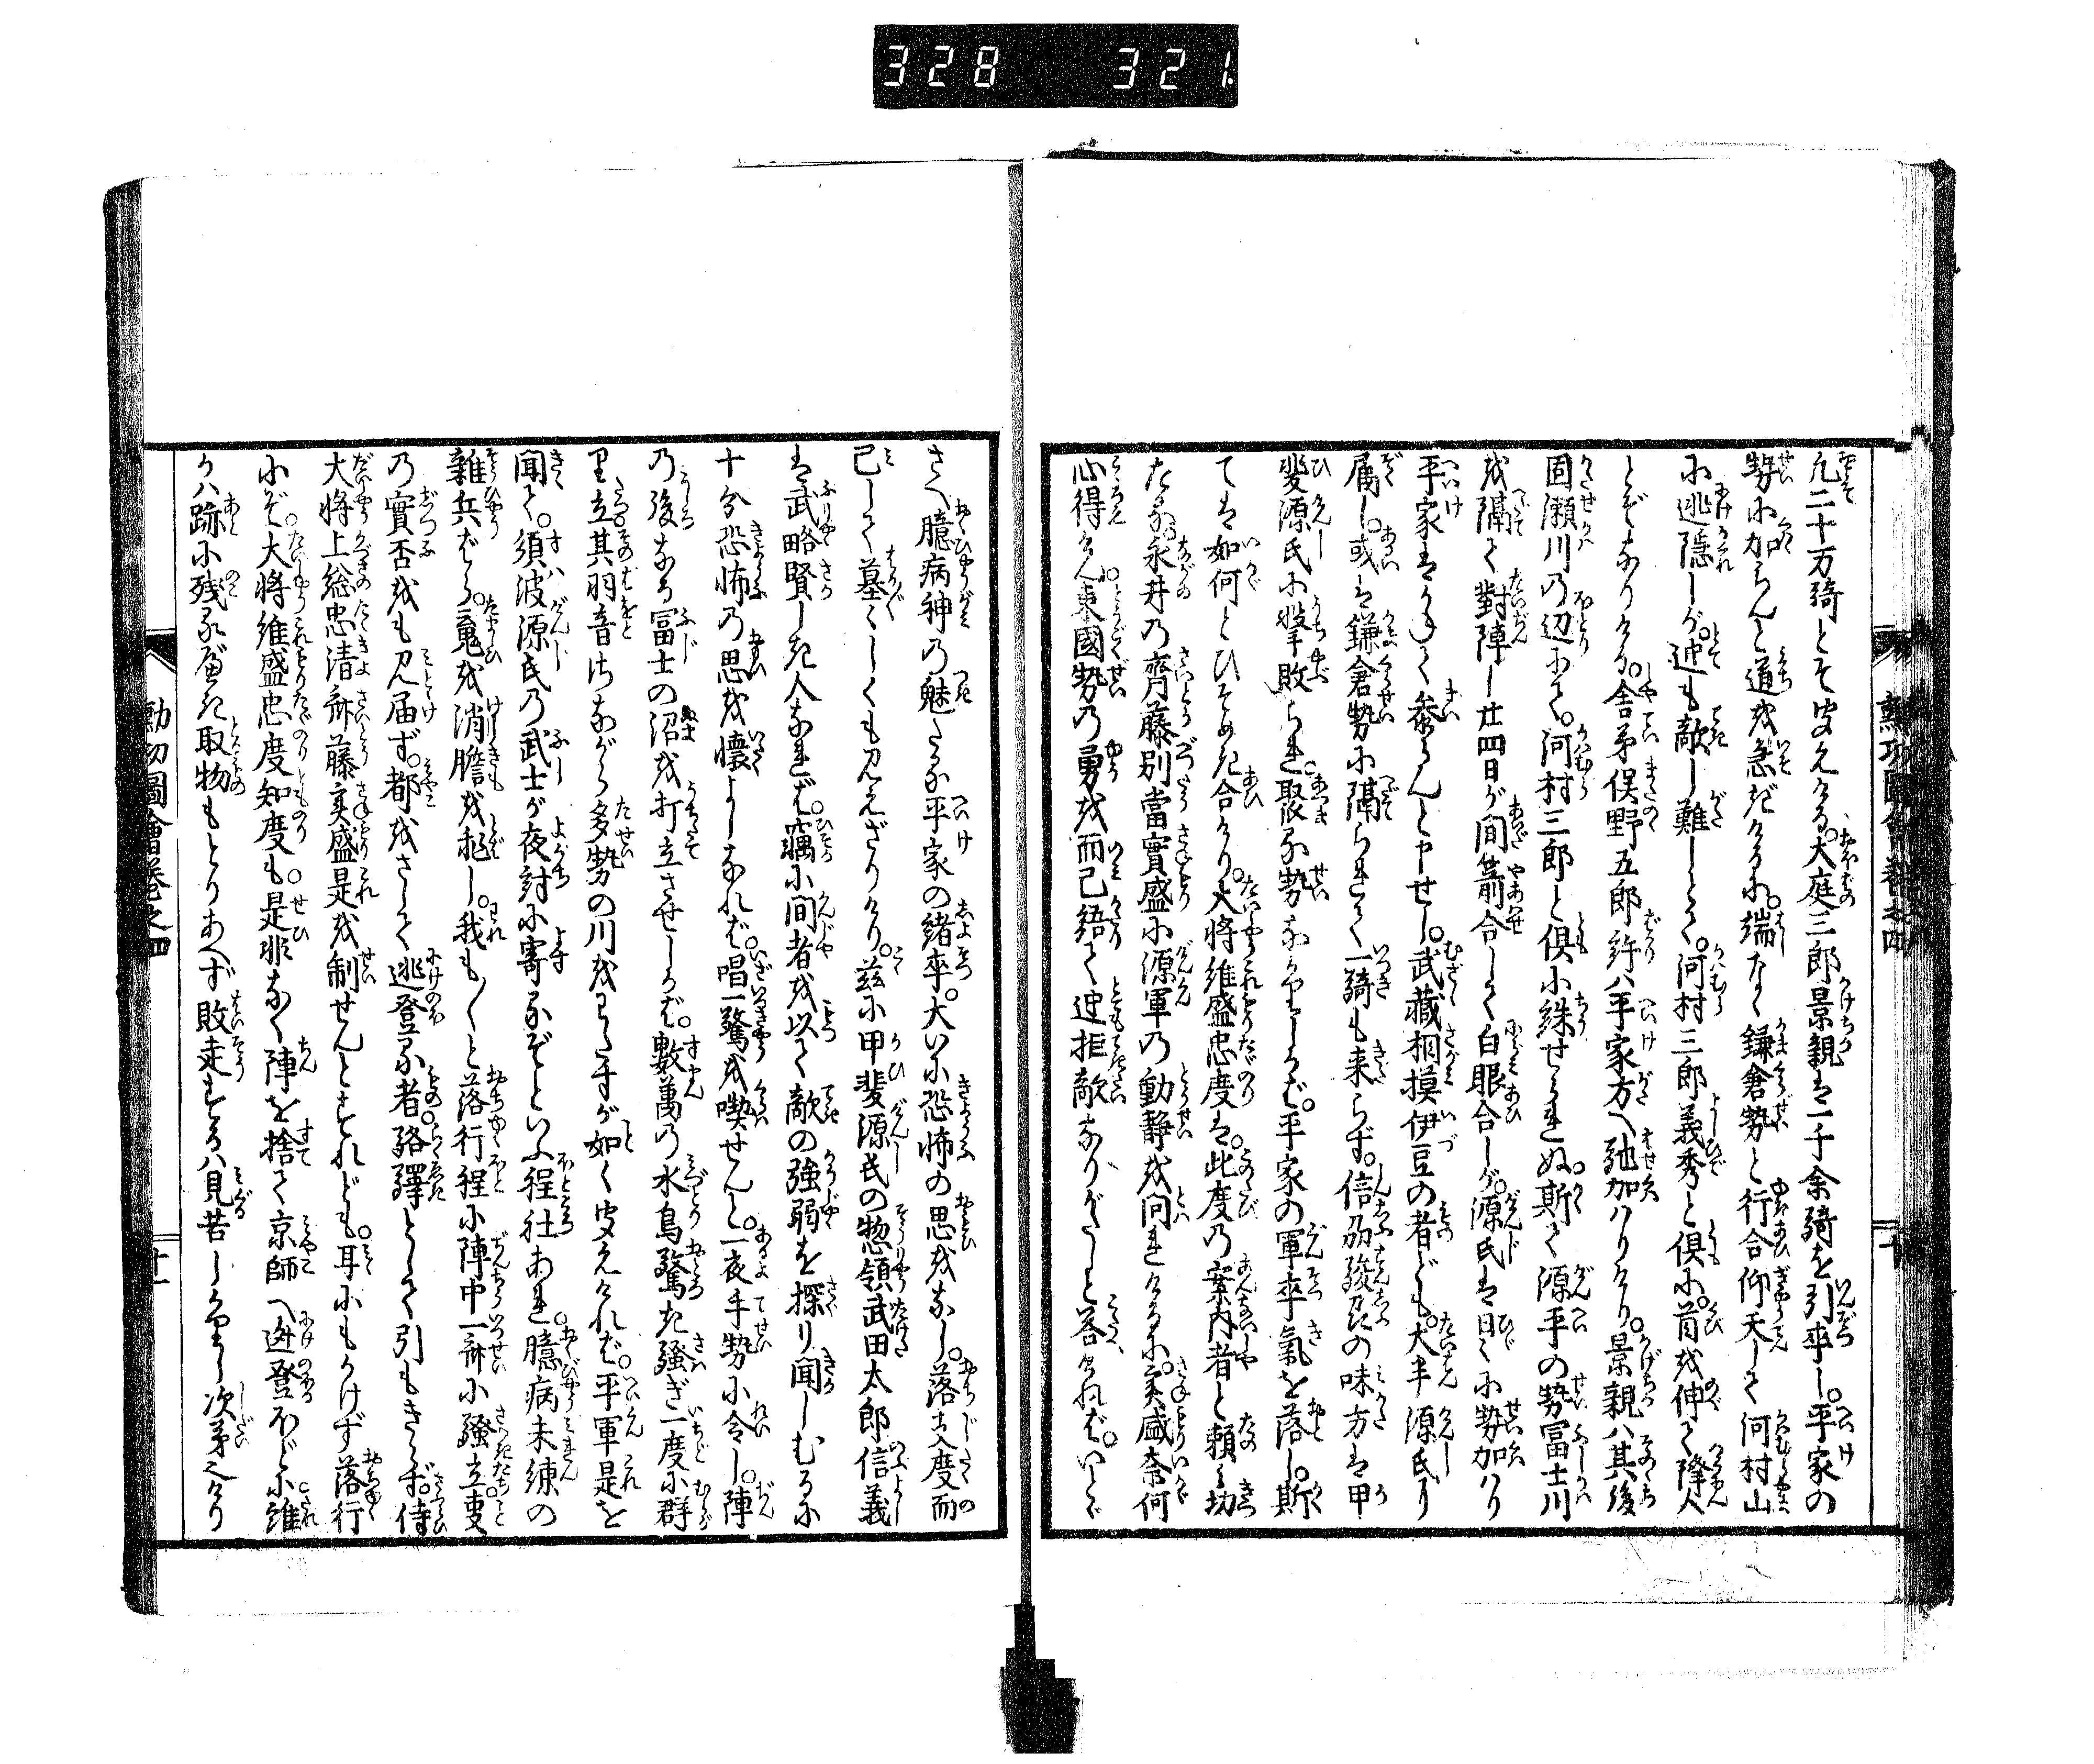 328 321
凢二十万騎とぞ聞えける。大庭三郎景親は一千余騎を引率し。平家の
勢に加らんと道を急ぎけるに。端なく鎌倉勢と行合仰天して河村山
に逃隠しが。迚も敵し難しとて。河村三郎義秀と倶に。首を伸て降人
とぞなりける。舎弟俣野五郎許ハ平家方へ馳加ハりけり。景親ハ其後
固瀬川の辺にて。河村三郎と倶に誅せられぬ。斯て源平の勢冨士川
を隔て對陣し廿四日が間箭合して白眼合しが。源氏は日々に勢加ハり
平家はかねて参らんと申せし。武蔵相摸伊豆の者ども。大半源氏に
属し。或は鎌倉勢に隔られて一騎も来らず。信刕駿刕の味方は甲
斐源氏に撃敗られ。聚る勢なかりしかば。平家の軍卒氣を落し。斯
ては如何とひそめき合けり。大将維盛忠度は。此度の案内者と頼み切
たる永井の齊藤別當實盛に源軍の動静を问れけるに。実盛奈何
心得けん東國勢の勇を而已語て迚拒敵ありがたしと答ければ。いとゞ
さへ臆病神の魅たる平家の緒卒。大いに恐怖の思をなし。落支度而
已して墓々しくも見えざりけり。茲に甲斐源氏の惣領武田太郎信義
は武略賢しき人なれば。竊に间者を以て敵の強弱を探り聞しむるに
十分恐怖の思を懐よしなれば。唱一驚を喫せんと。一夜手勢に令し。陣
の後なる冨士の沼を打立させしかば。數萬の水鳥驚き騒ぎ一度に群
り立。其羽音さながら多勢の川をわたすが如く聞えければ。平軍是を
聞て。須波源氏の武士が夜討に寄るぞといふ程社あれ。臆病未練の
雑兵ばら。䰟を消膽を飛し。我も〳〵と落行程に陣中一斉に騒立。事
の實否をも見届ず。都をさして逃登る者絡繹として引もきらず。侍
大将上総忠清斉藤実盛是を制せんとすれども。耳にもかけず落行
にぞ。大将維盛忠度知度も。是非なく陣を捨て京師へ迯登るほどに誰
かハ跡に残るべき取物もとりあへず敗走するハ見苦しかりし次第也けり
勲功圖會巻之四
十一